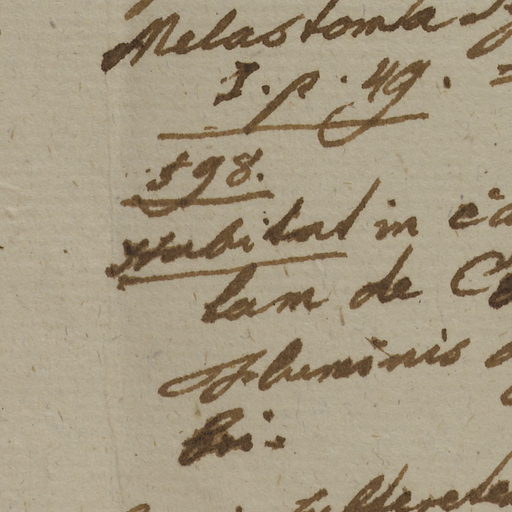 Melastoma
I. p. 49. =
598.
Habitat in
lam de
Fluminis
bi.